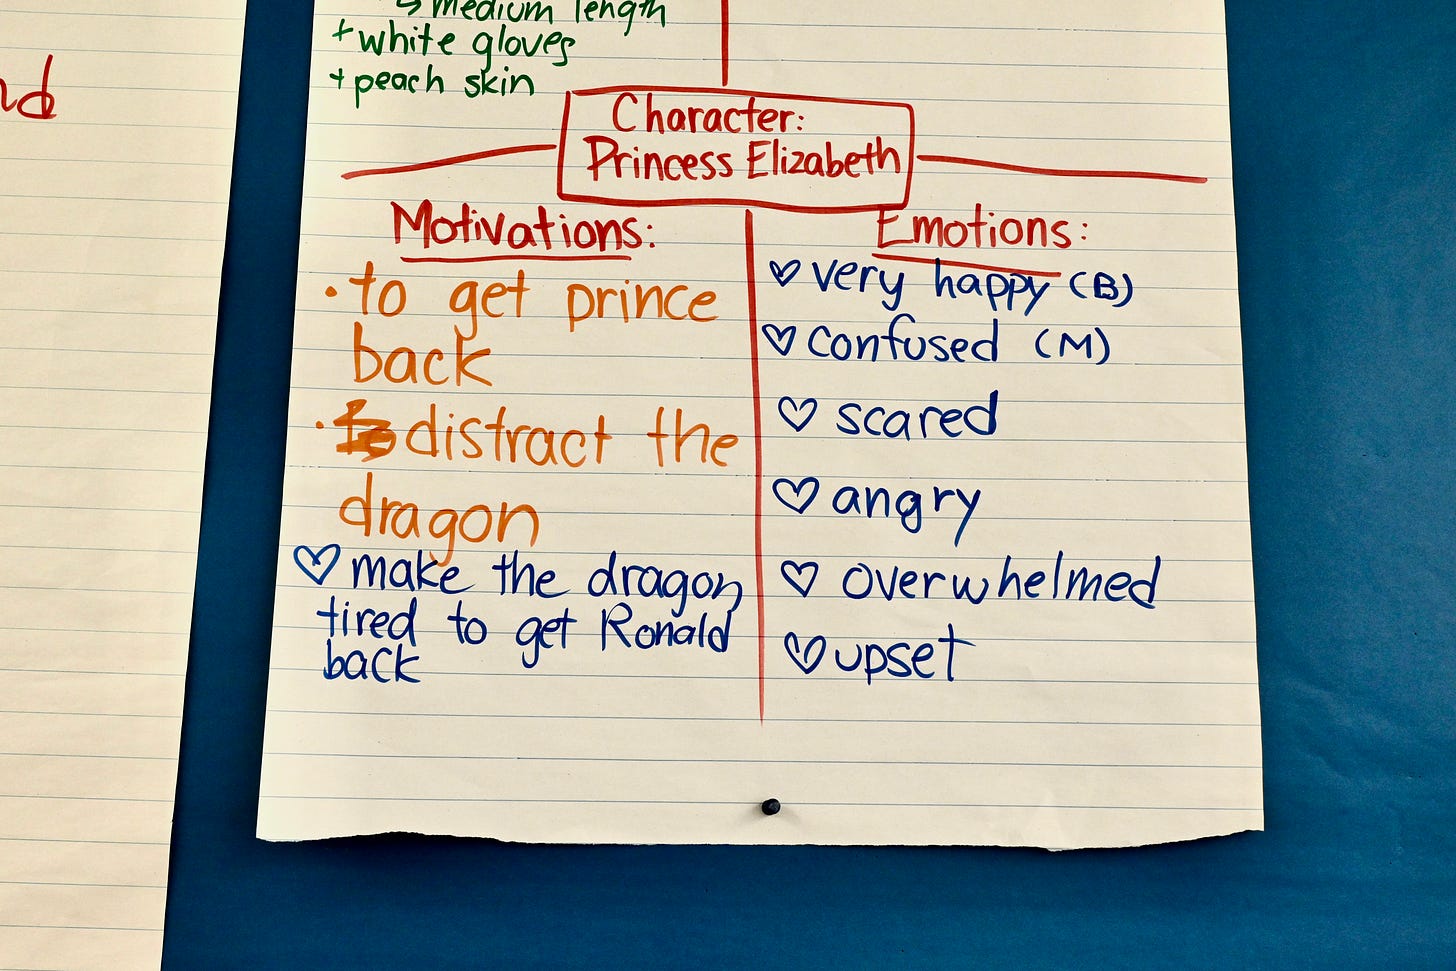 ↳ medium length
+ white gloves
+ peach skin
Character:
Princess Elizabeth
Motivations:
• to get prince
back
• distract the
dragon
♡ make the dragon
tired to get Ronald
back
Emotions:
♡ very happy (B)
♡ confused (M)
♡ scared
♡ angry
♡ overwhelmed
♡ upset